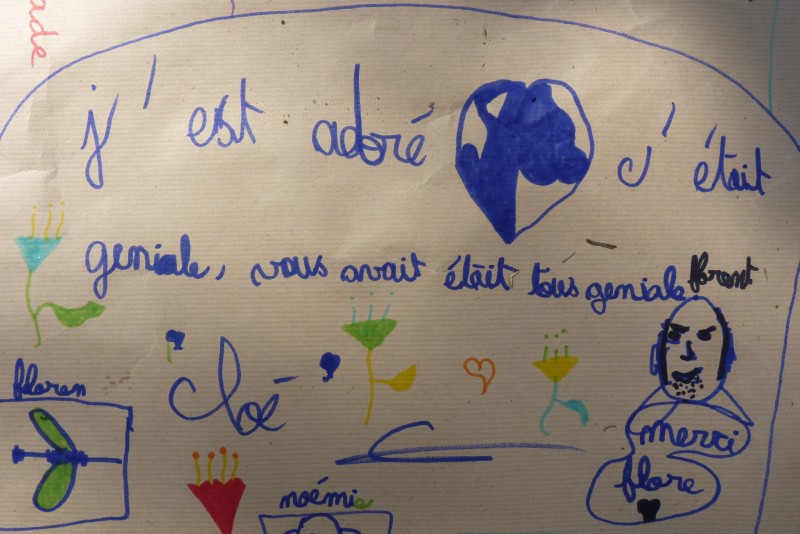 ade
j'est adoré c'était
geniale, vous avait étàit tous geniale
florent
Cloé
floren
merci
flore
noémie